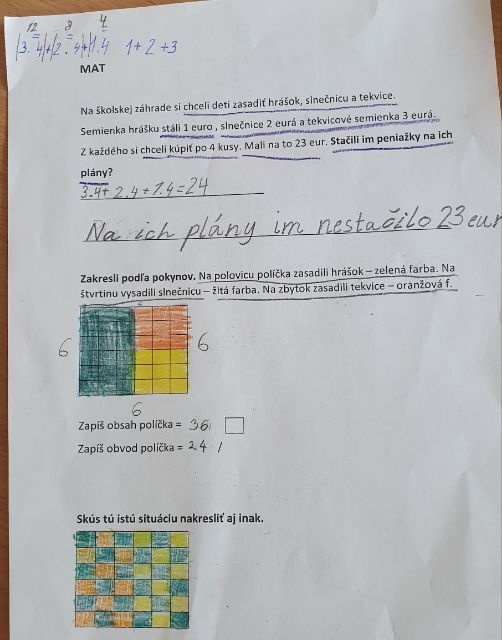 12 8 4
|3.4|+|2.4|+|1.4 1+2+3
MAT
Na školskej záhrade si chceli deti zasadiť hrášok, slnečnicu a tekvice.
Semienka hrášku stáli 1 euro , slnečnice 2 eurá a tekvicové semienka 3 eurá.
Z každého si chceli kúpiť po 4 kusy. Mali na to 23 eur. Stačili im peniažky na ich
plány?
3.4+2.4+1.4=24
Na ich plány im nestačilo 23 eur
Zakresli podľa pokynov. Na polovicu políčka zasadili hrášok – zelená farba. Na
štvrtinu vysadili slnečnicu – žltá farba. Na zbytok zasadili tekvice – oranžová f.
6 6
6
Zapíš obsah políčka = 36
Zapíš obvod políčka = 24
Skús tú istú situáciu nakresliť aj inak.